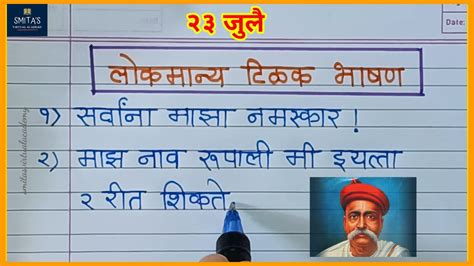 SMITA'S
VIRTUAL ACADEMY
२३ जुलै
लोकमान्य टिळक भाषण
१) सर्वांना माझा नमस्कार !
२) माझ नाव रूपाली मी इयत्ता
२ रीत शिकते
smitasvirtualacademy